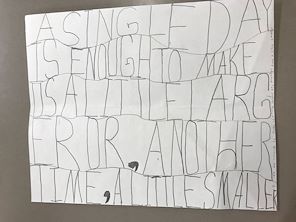 A SINGLE DAY
IS ENOUGH TO MAKE
US A LITTLE LARG
ER OR, ANOTHER
TIME, A LITTLE SMALLER